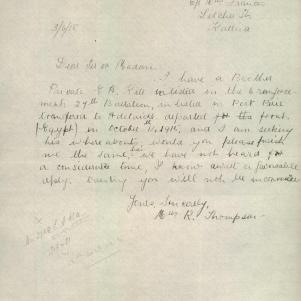 C/o Mrs Francis
Letcher St
Kadina
3/6/15
Dear Sir or Madam.
I have a Brother
Private E. R. Kell enlisted in the 6 reinforce-
ments 27th Battalion, enlisted in Port Pirie
transfered to Adelaide departed for the front,
(Egypt) on October 1915, and I am seeking
his where about, would you please furnish
me the same, we have not heard for
a considerable time, I know await a favourable
reply. Trusting you will not be inconvenience
Yours Sincerely,
Mrs R. Thompson